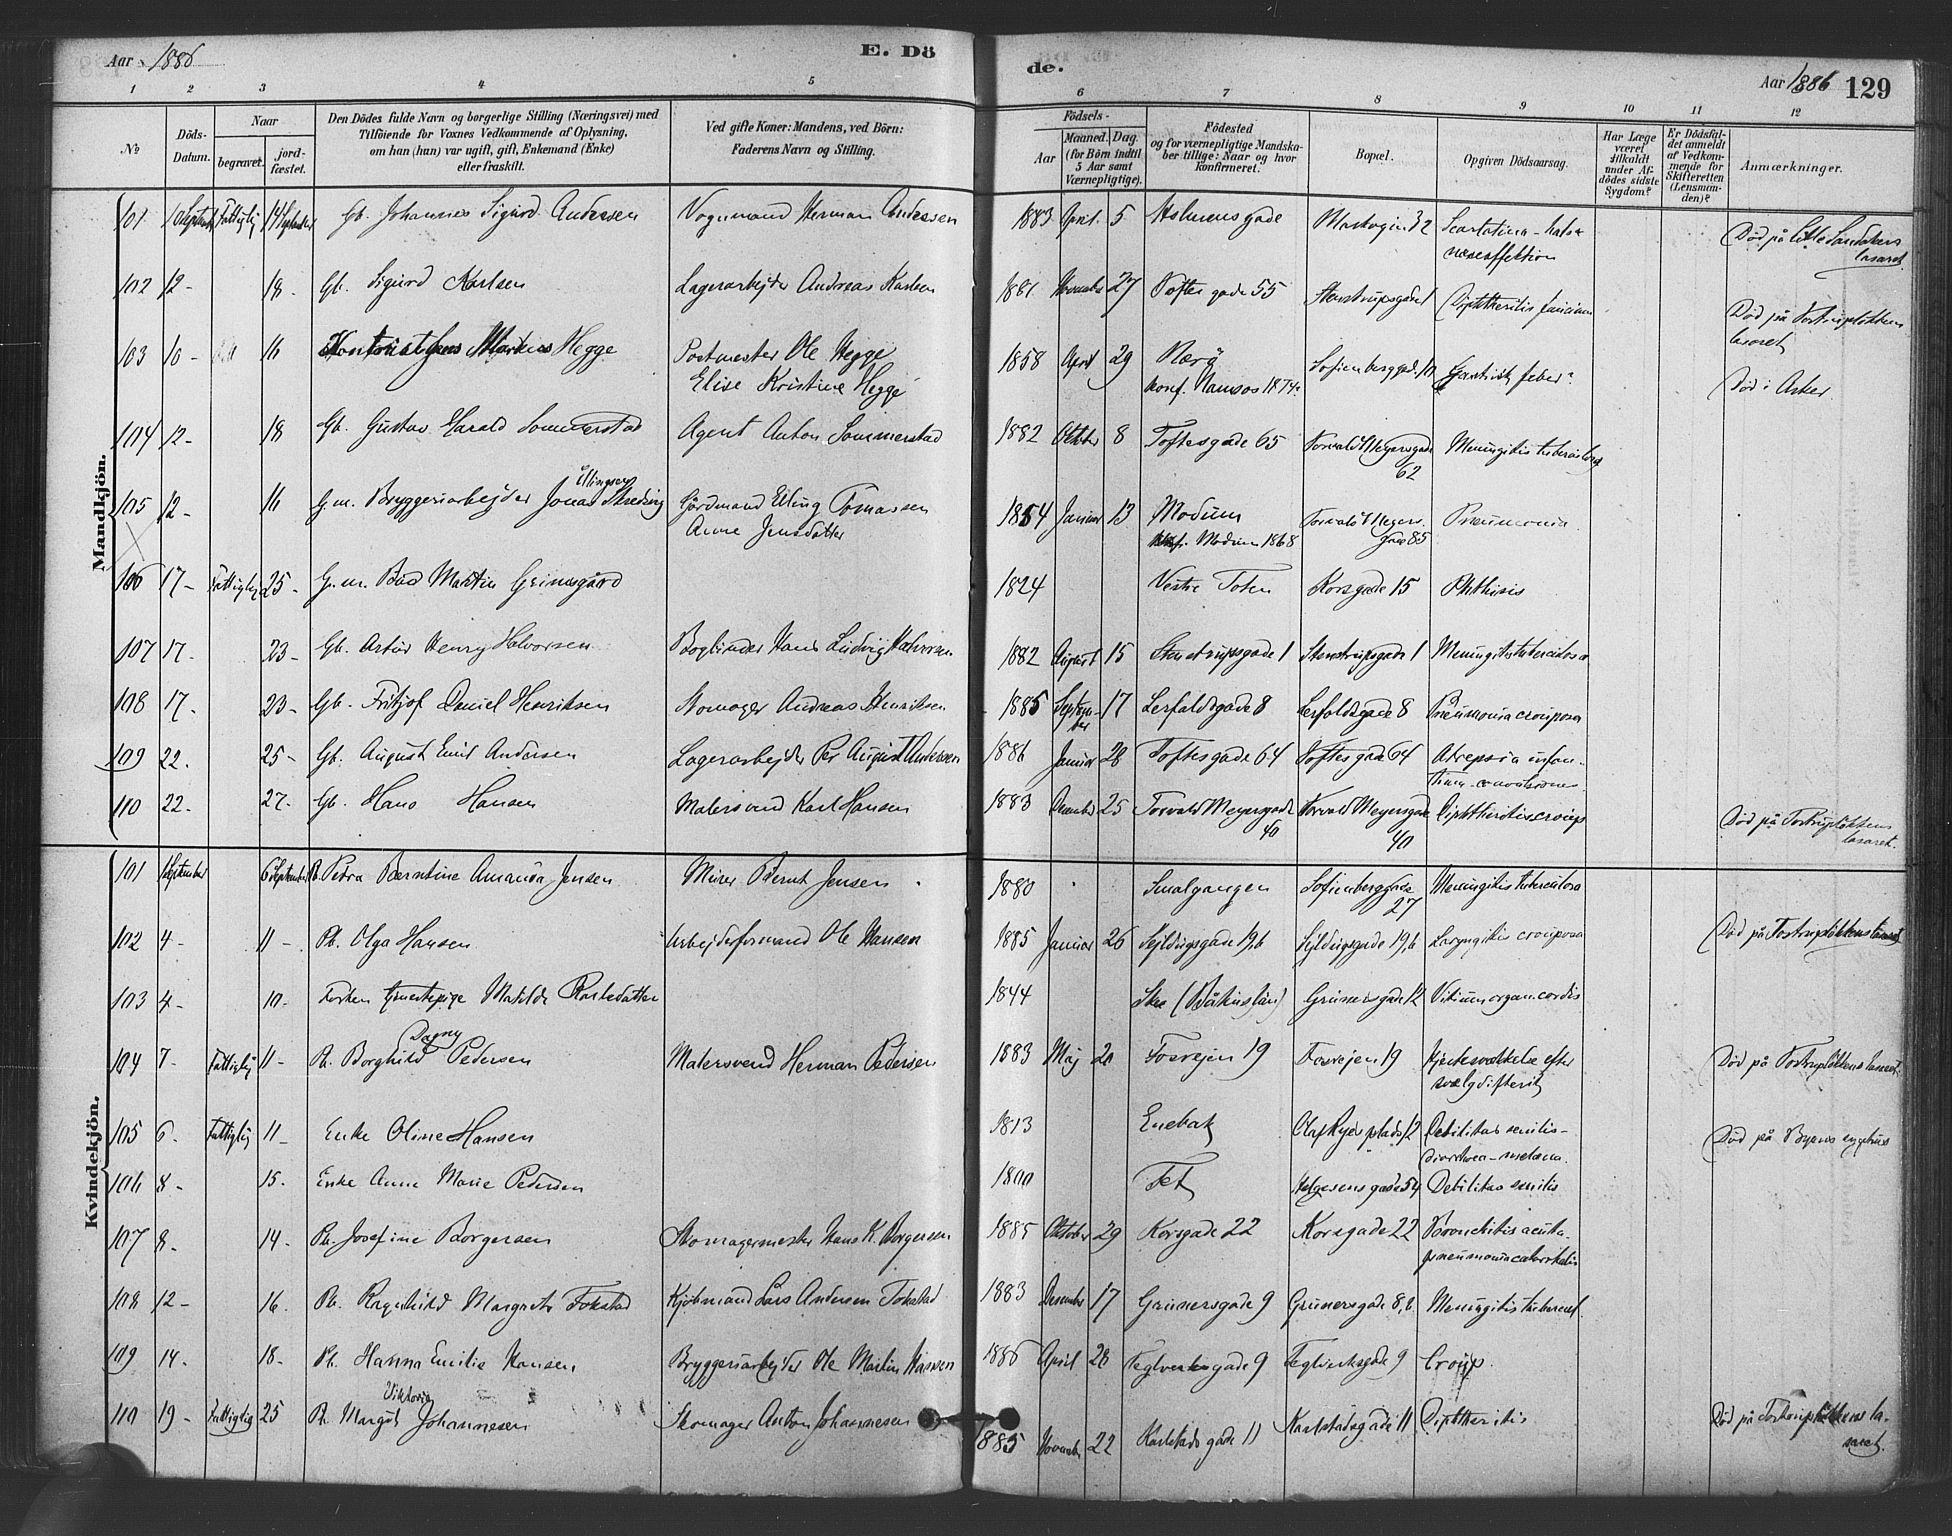 Aar 1886
E. Dö
de.
Aar 1886 129
1 2 3 4 5 6 7 8 9 10 11 12
No
Döds-Datum.
Naar
begravet.
jord-fæstet.
Den Dödes fulde Navn og borgerlige Stilling (Næringsvei) med
Tilföiende for Voxnes Vedkommende af Oplysning,
om han (hun) var ugift, gift, Enkemand (Enke)
eller fraskilt.
Ved gifte Koner: Mandens, ved Börn:
Faderens Navn og Stilling.
Födsels-
Aar
Maaned. Dag.
(for Börn indtil
5 Aar samt
Værnepligtige).
Födested
og for værnepligtige Mandska-
ber tillige: Naar og hvor
konfirmeret.
Bopæl.
Opgiven Dödsaarsag.
Har Læge
været
tilkaldt
under Af-
dödes sidste
Sygdom?
Er Dödsfal-
det anmeldt
af Vedkom-
mende for
Skifteretten
(Lensman-
den)?
Anmærkninger.
Mandkjön.
101 10 September Fattiglig 14 September Gb. Johannes Sigurd Andersen Vognmand Herman Andersen 1883 April 5 gade 32 Scarlatina - hals &
næseaffektion
Död på Lille
lasaret
102 12 - 18 - Gb. Sigurd Karlsen Lagerarbejder Andreas Karlsen 1881 November 27 Toftes gade 55 Stenstrupsgade 1 Diphtheritis faucium
Död på Tostrupløkkens
lasaret
103 10 - 16 Markus Hegge Postmester Ole Hegge 1858 April 29 Nærö Sofienberggad. Gastrisk feber Död i Asker
Elise Kristine Hegge konf. Namsos 1874
104 12 - 18 Gb. Gustav Harald Sommerstad Agent Anton Sommerstad 1882 Oktober 8 Toftesgade 65 Torvald Meyersgade
62 Meningitis tuberculosa
105 12 - 16 G. m. Bryggeriarbejder Jonas Ellingsen Gårdmand Elling Tomassen 1854 Januar 13 Modum Torvald Meyers
gade 85 Pneumonia
Anne Jensdatter konf. Modum 1868
106 17 - Fattiglig 25 - G. m. Martin Grimsgård 1824 Vestre Toten Korsgade 15 Phthisis
107 17 - 23 - Gb. Artur Henry Halvorsen Bogbinder Hans Ludvig Halvorsen 1882 August 15 Stenstrupsgade 1 Stenstrupsgade 1 Meningitis tuberculosa
108 17 - 23 - Gb. Fritjof Daniel Henriksen Skomager Andreas Henriksen 1885 September 17 Lerfaldsgade 8 Lerfaldsgade 8 Pneumonia crouposa
109 22. 25 - Gb. August Emil Andersen Lagerarbejder Per August Andersen 1886 Januar 28 Toftesgade 64 Toftesgade 64 Atrepsia infan-
tium - convulsiones
110 22. 27 - Gb. Hans Hansen Malersvend Karl Hansen 1883 December 25 Torvald Meyersgade
40 Torvald Meyersgade
40 Diphtheritis croup
Död på Tostrupløkkens
lasaret.
Kvindekjön.
101 1 September 6 September Pb. Petra Berntine Amanda Jensen Murer Bernt Jensen 1880 Smalgangen Sofienberggade
27 Meningitis tuberculosa
102 4 - 11 - Pb. Olga Hansen Arbejdsformand Ole Hansen 1885 Januar 26 Sejldugsgade 19,b Sejldugsgade 19,b Laryngitis crouposa Död på Tostrupløkkens lasaret
103 4 - 10 - Matilde Karlsdatter 1844 Skee (Båhuslän) Grünersgade 12 Vitium organ. cordis
104 7 - Fattiglig 11 - Pb. Borghild Dagny Pedersen Malersvend Herman Pedersen 1883 Maj 20 Fosvejen 19 Fosvejen 19 Hjertesvækkelse efter
svælgdifterit Död på Tostrupløkkens lasaret
105 6 - Fattiglig 11 - Enke Oline Hansen 1813 Enebak Olaf Ryes plads 12 Debilitas senilis -
diarrhoea - melæna. Död på Byens sygehus
106 8 - 15 - Enke Anne Marie Pedersen 1800 Fet Helgesens gade 54 Debilitas senilis
107 8 - 14 - Pb. Josefine Borgersen Skomagermester Hans K. Borgersen 1885 Oktober 29 Korsgade 22 Korsgade 22 Bronchitis acuta -
pneumonia catarrhalis
108 12 - 16 - Pb. Ragnhild Margrete Fokstad Kjøbmand Lars Andersen Fokstad 1883 December 17 Grünersgade 9 Grünersgade 8,b Meningitis tubercul.
109 14 - 18 - Pb. Hanna Emilie Hansen Bryggeriarbejder Ole Martin Hansen 1886 April 28 Teglverksgade 9 Teglverksgade 9 Croup.
110 19 - Fattiglig 25 Pb. Margit Viktoria Johannesen Skomager Anton Johannesen 1885 November 22 Karlstads gade 11 Karlstadsgade 11 Diphtheritis Död på Tostrupløkkens la-
saret.